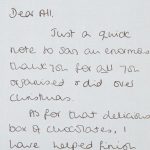 Dear All,
Just a quick
note to say an enormous
thank you for all you
organised & did over
Christmas.
As for that delicious
box of chocolates, I
have helped finish